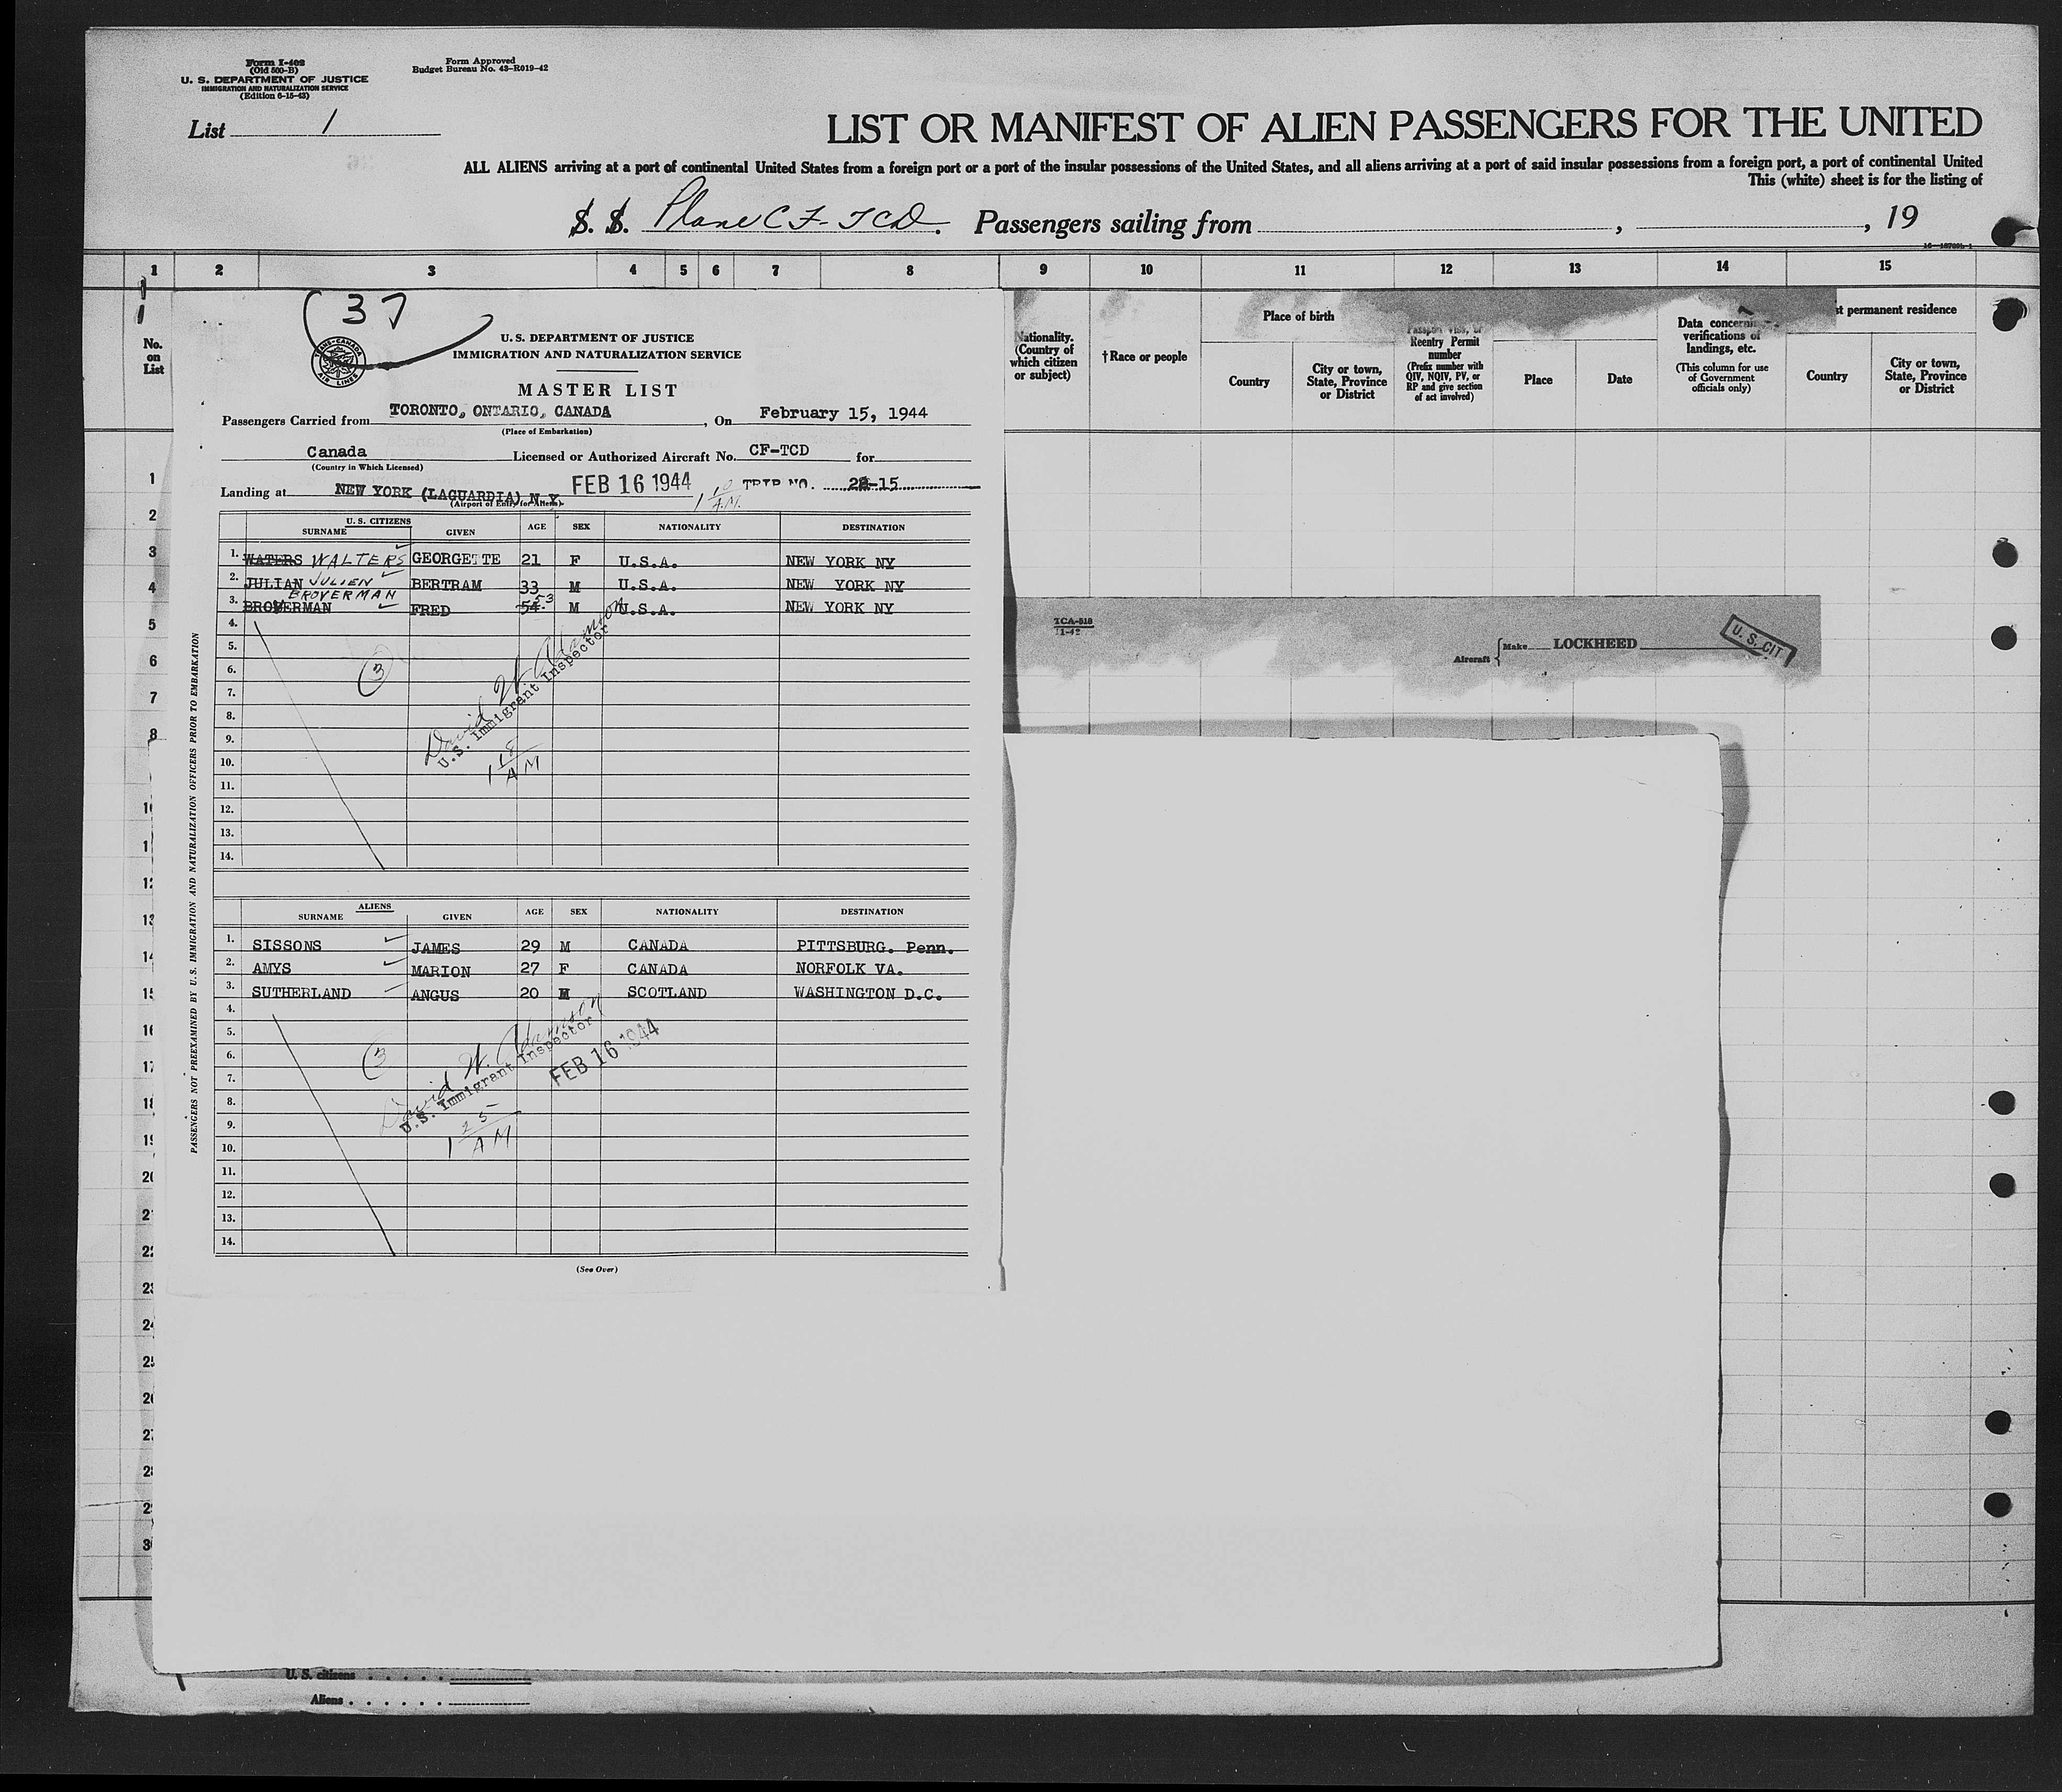 Form I-402
(Old 500-B)
U. S. DEPARTMENT OF JUSTICE
IMMIGRATION AND NATURALIZATION SERVICE
(Edition 6-15-43)
Form Approved
Budget Bureau No. 43-R019-42
List 1
LIST OR MANIFEST OF ALIEN PASSENGERS FOR THE UNITED
ALL ALIENS arriving at a port of continental United States from a foreign port or a port of the insular possessions of the United States, and all aliens arriving at a port of said insular possessions from a foreign port, a port of continental United
This (white) sheet is for the listing of
S. S. Plane CF-TCD. Passengers sailing from , , 19
1 2 3 4 5 6 7 8 9 10 11 12 13 14 15
No. on List
Nationality. (Country of which citizen or subject)
†Race or people
Place of birth
Country
City or town, State, Province or District
Reentry Permit number
(Prefix number with QIV, NQIV, PV, or RP and give section of act involved)
Place
Date
Data concerning verifications of landings, etc.
(This column for use of Government officials only)
permanent residence
Country
City or town, State, Province or District
37
TRANS-CANADA AIR LINES
U. S. DEPARTMENT OF JUSTICE
IMMIGRATION AND NATURALIZATION SERVICE
MASTER LIST
Passengers Carried from TORONTO, ONTARIO, CANADA, On February 15, 1944
(Place of Embarkation)
Canada Licensed or Authorized Aircraft No. CF-TCD for
(Country in Which Licensed)
Landing at NEW YORK (LAGUARDIA) N.Y. FEB 16 1944 1 10 A.M. TRIP NO. 22-15
(Airport of Entry for Aliens)
U. S. CITIZENS
SURNAME GIVEN AGE SEX NATIONALITY DESTINATION
1. WATERS WALTERS GEORGETTE 21 F U.S.A. NEW YORK NY
2. JULIAN JULIEN BERTRAM 33 M U.S.A. NEW YORK NY
BROVERMAN
3. BROVERMAN FRED 54 53 M U.S.A. NEW YORK NY
4.
5.
6.
7.
8.
9.
10.
11.
12.
13.
14.
3
David W. Harrison
U.S. Immigrant Inspector
1 18 AM
ALIENS
SURNAME GIVEN AGE SEX NATIONALITY DESTINATION
1. SISSONS JAMES 29 M CANADA PITTSBURG. Penn.
2. AMYS MARION 27 F CANADA NORFOLK VA.
3. SUTHERLAND ANGUS 20 M SCOTLAND WASHINGTON D.C.
4.
5.
6.
7.
8.
9.
10.
11.
12.
13.
14.
3
David W. Harrison
U.S. Immigrant Inspector
FEB 16 1944
1 25 AM
(See Over)
PASSENGERS NOT PREEXAMINED BY U.S. IMMIGRATION AND NATURALIZATION OFFICERS PRIOR TO EMBARKATION
TCA-518
11-42
Aircraft { Make LOCKHEED
U. S. CIT
1
2
3
4
5
6
7
8
20
22
24
30
U. S. citizens
Aliens